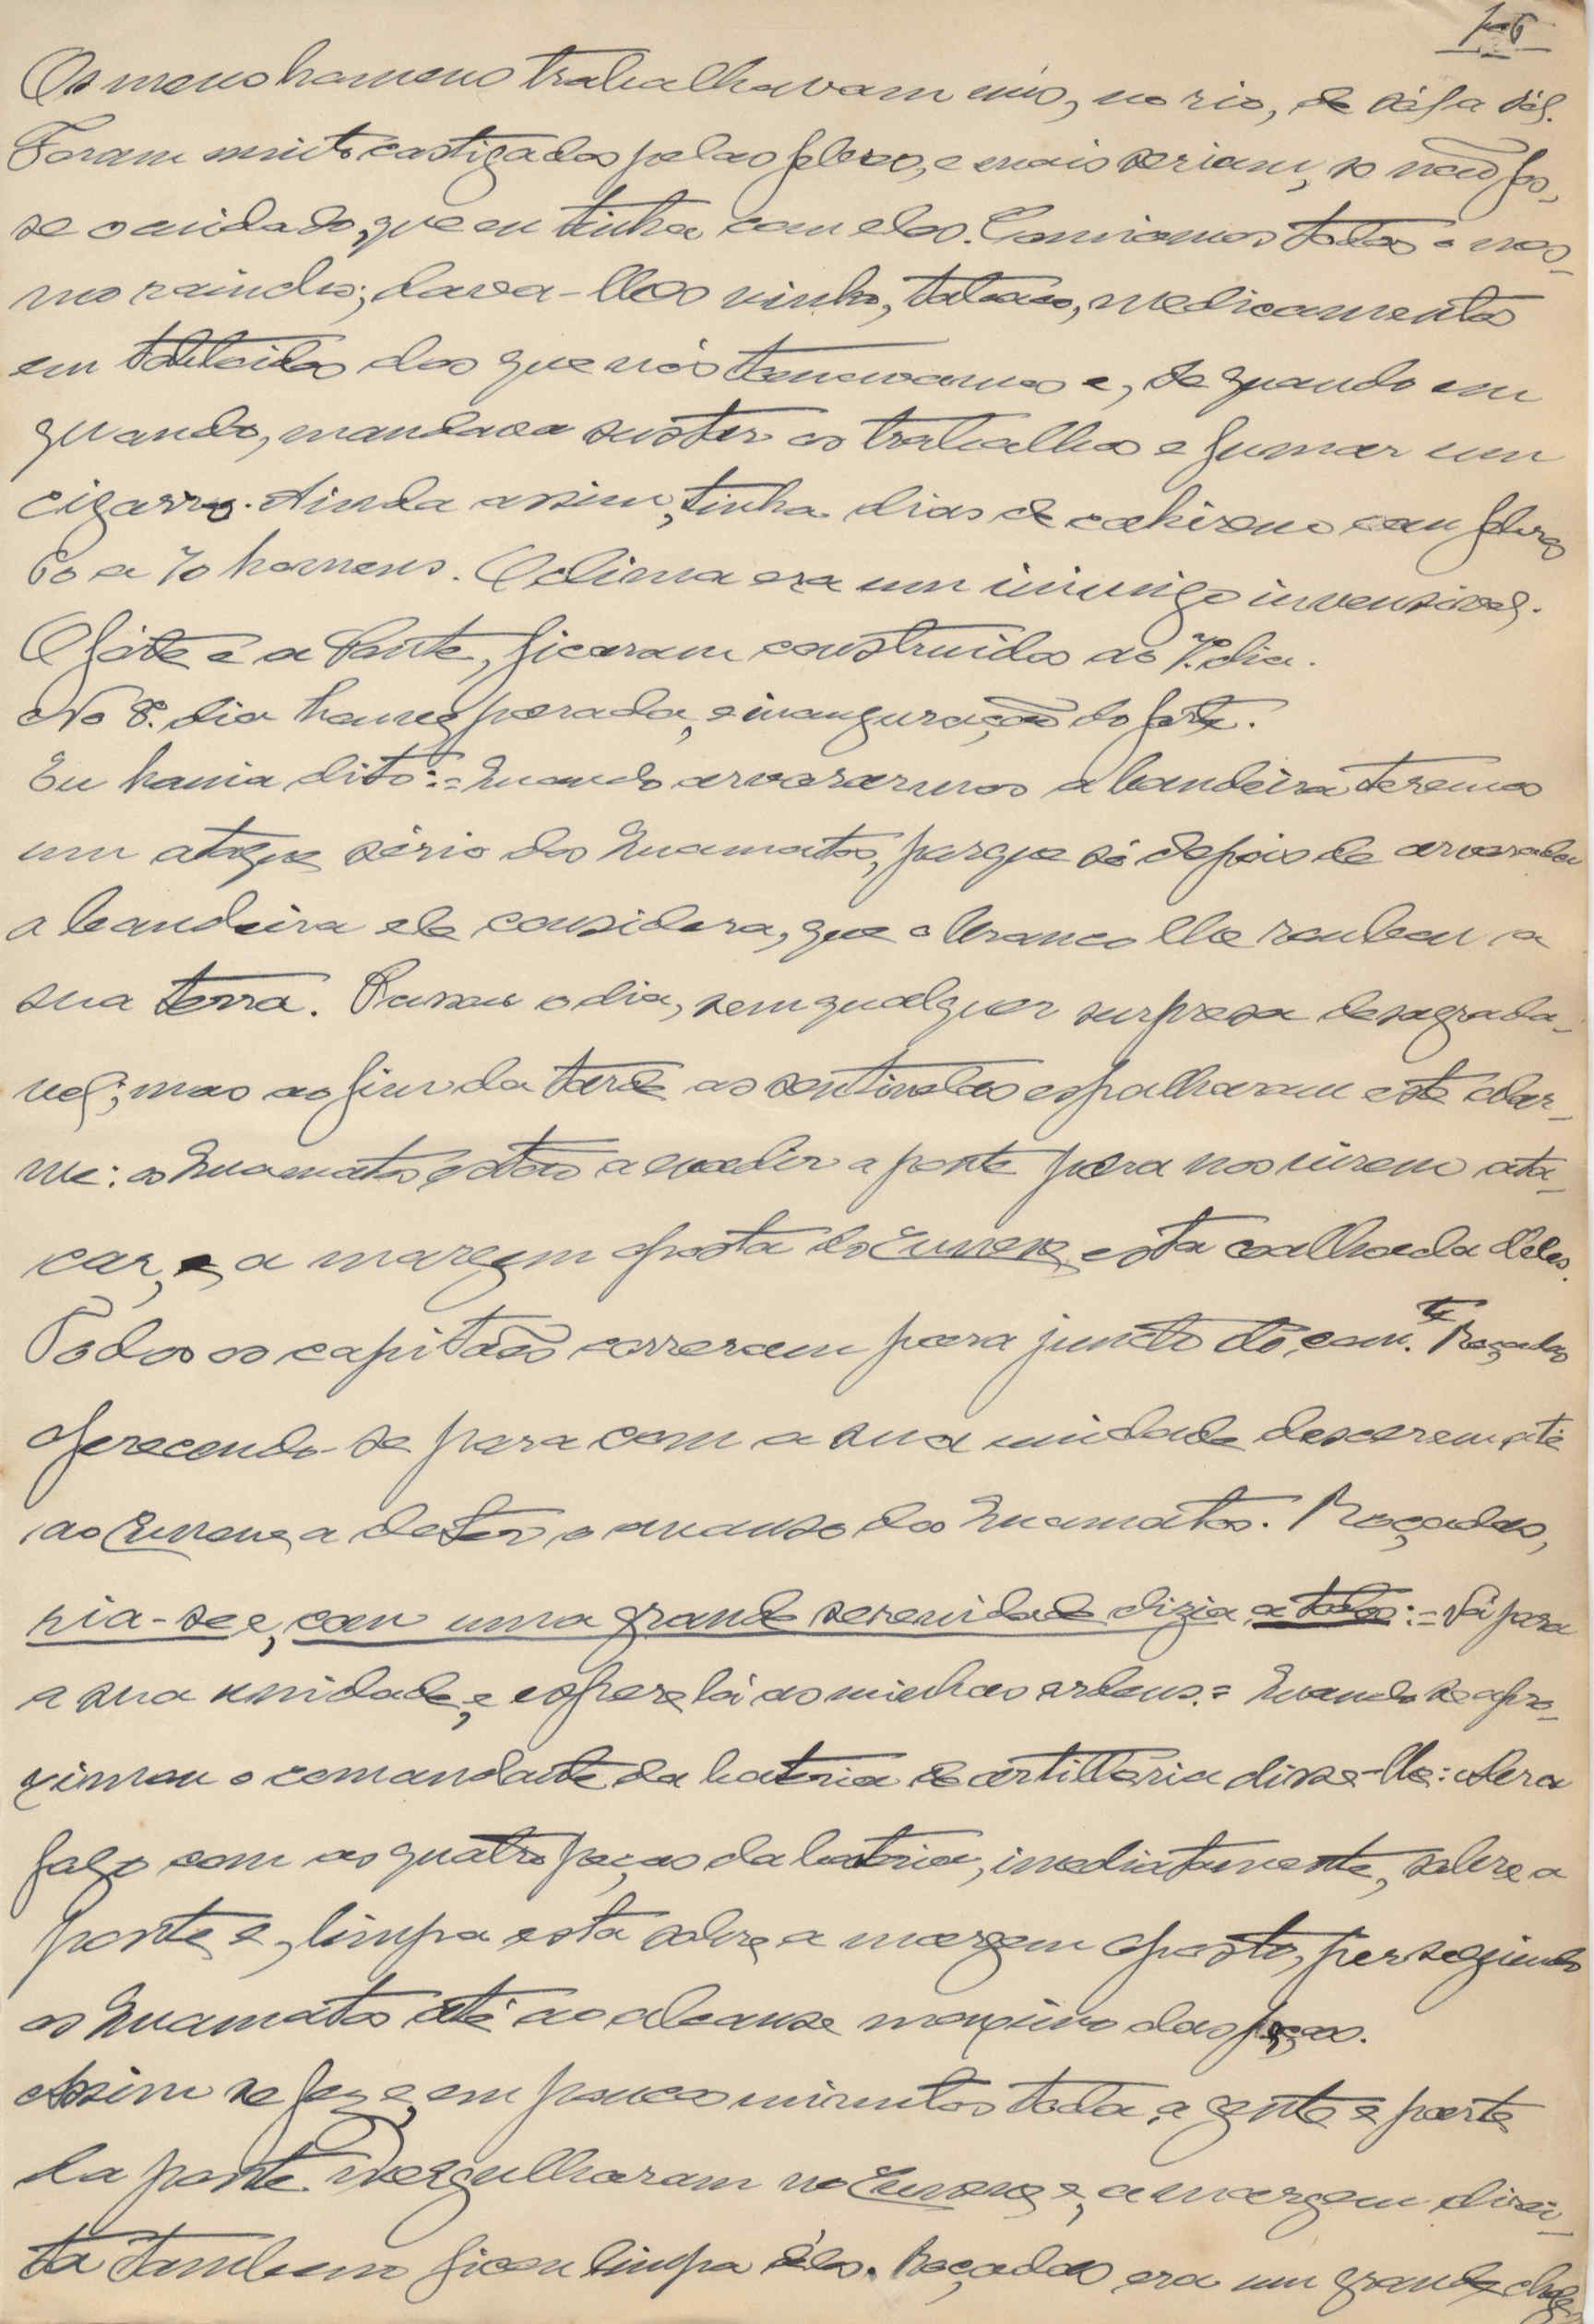 Os meus homens trabalhavam nús, no rio, de sól a sól.
Foram muito castigados pelas febres, e mais seriam, se não fos-
se o cuidado, que eu tinha com eles. Comiamos todos o mes-
mo rancho; dava-lhes vinho, tabaco, medicamentos
em tabloides dos que nós tomavamos e, de quando em
quando, mandava suster os trabalhos e fumar um
cigarro. Ainda assim, tinha dias de cahirem com febres
60 a 70 homens. O clima era um inimigo invensivel.
O forte e a Ponte, ficaram construidos ao 7.º dia.
No 8.º dia houve parada, e inauguração do forte.
Eu havia dito:= Quando arvorarmos a bandeira teremos
um ataque sério dos Quamatos, porque só depois de arvorada
a bandeira ele considera, que o branco lhe roubou a
sua terra. Passou o dia, sem qualquer surpresa desagrada-
vel; mas ao fim da tarde as sentinelas espalharam este alar-
me: os Quamatos estão a invadir a ponte para nos virem ata-
car, e a margem oposta do Cunene está coalhada d'eles.
Todos os capitães correram para juncto do com.te Roçadas
oferecendo-se para com a sua unidade descerem até
ao Cunene a deter o avanso dos Quamatos. Roçadas,
ria-se e, com uma grande serenidade dizia a todos:= Vá para
a sua unidade, e espere lá as minhas ordens.= Quando se apro-
ximou o comandante da bateria de artilleria disse-lhe: Abra
fogo com as quatro peças da bateria, imediatamente, sobre a
ponte e, limpa esta sobre a margem oposta, perseguindo
os Quamatos até ao alcanse maximo das peças.
Assim se fez e, em poucos minutos toda a gente e parte
da ponte mergulharam no Cunene e, a margem direi-
ta tambem ficou limpa d'eles. Roçadas era um grande chefe,